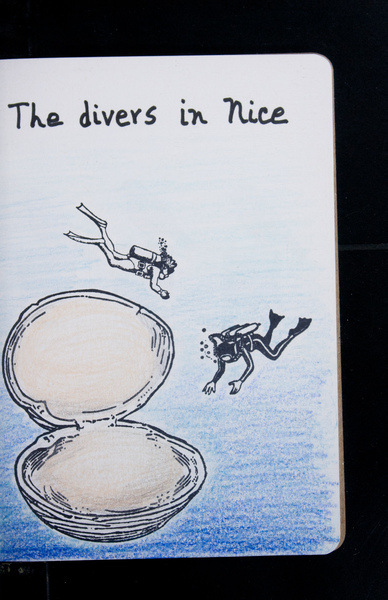 The divers in Nice